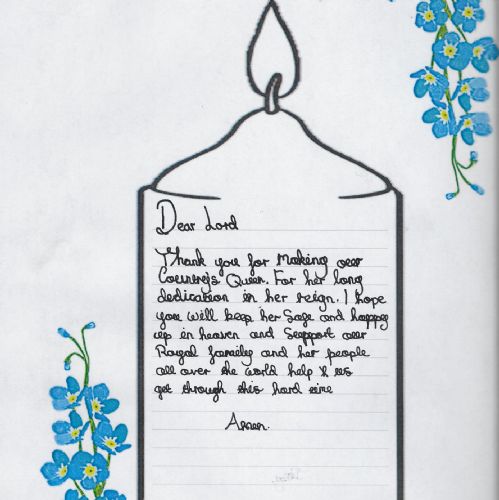 Dear Lord
Thank you for Making our
Country's Queen. For her long
dedication in her reign. I hope
you will keep her Safe and happy
up in heaven and Support our
Royal family and her people
all over the world help & us
get through this hard time
Amen.